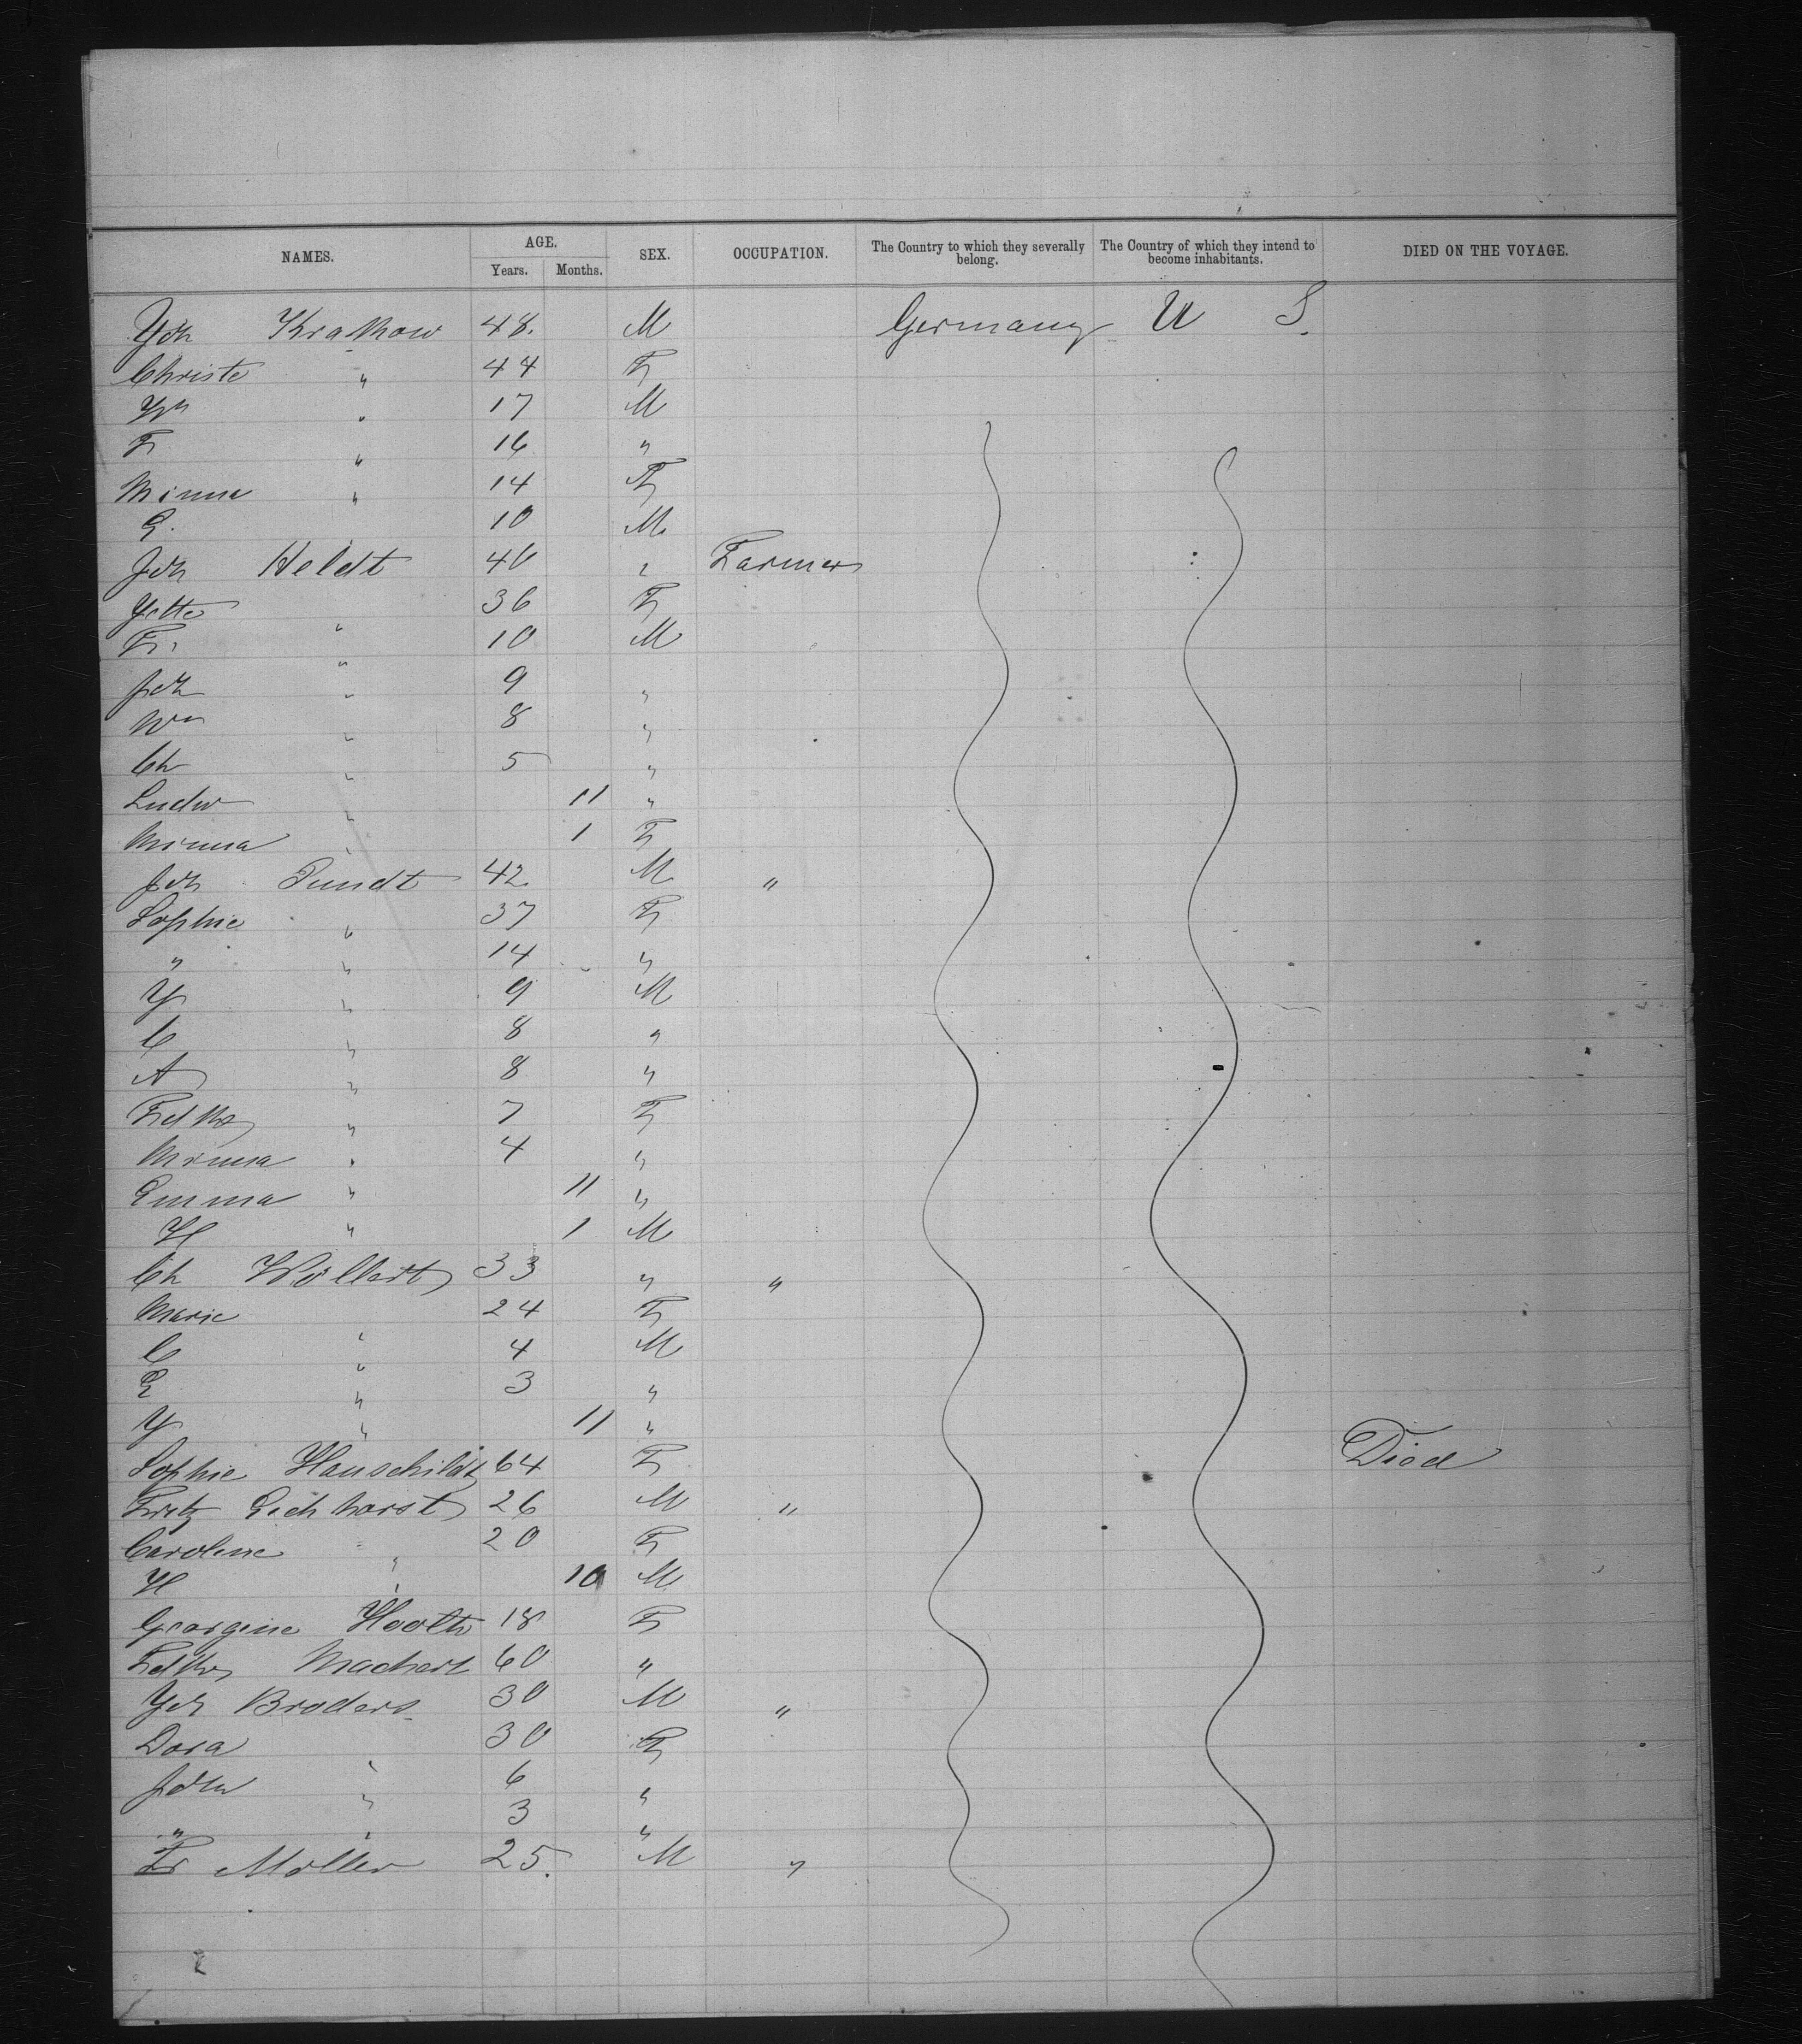 NAMES. AGE. SEX. OCCUPATION. The Country to which they severally belong. The Country of which they intend to become inhabitants. DIED ON THE VOYAGE.
Years. Months.
Joh Krakhow 48. M Germany U S.
Christe " 44 F
" 17 M
F " 16 "
Minna " 14 F
G. 10 M
Joh Heldt 46 " Farmer
Jette " 36 F
Fr. " 10 M
Joh " 9 "
Wm " 8 "
Ch " 5 "
Ludw " 11 "
Minna " 1 F
Joh Pundt 42 M "
Sophie " 37 F
" " 14 "
J " 9 M
C " 8 "
A " 8 "
Fedke " 7 F
Minna " 4 "
Emma " 11 "
H " 1 M
Ch Wollert 33 " "
Marie " 24 F
C " 4 M
G " 3 "
J " 11 "
Sophie Hauschildt 64 F Died
Fritz Eichhorst 26 M "
Caroline " 20 F
H " 10 M
Georgine 18 F
Machert 60 "
Joh Broders 30 M "
Dora " 30 F
John " 6 "
" " 3 "
Fr Moller 25. M "